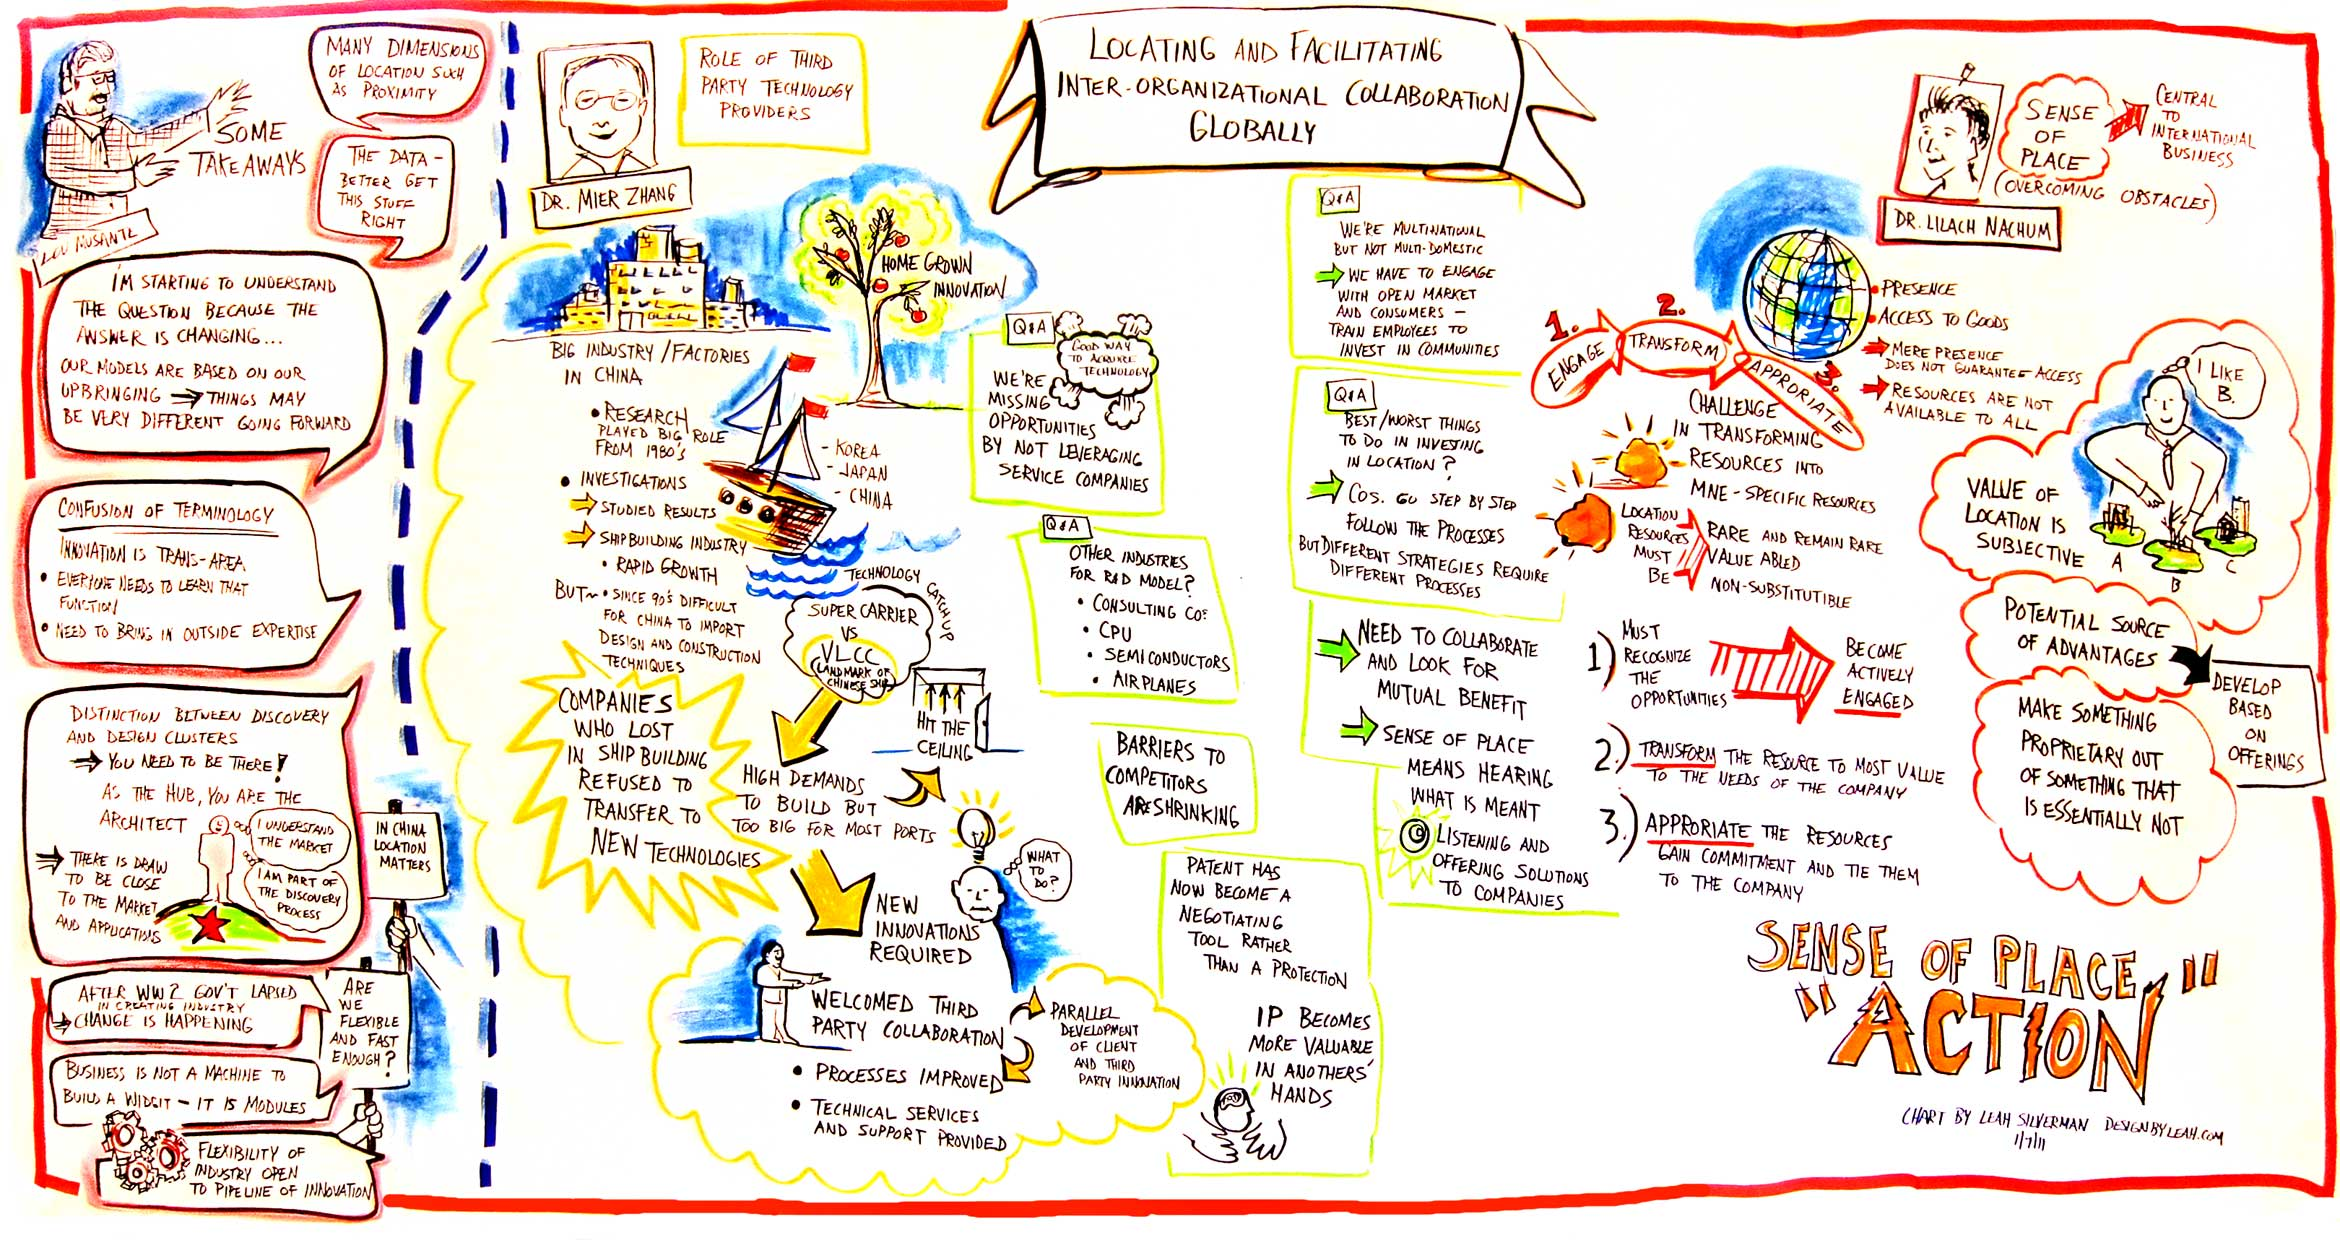 LOCATING AND FACILITATING
INTER-ORGANIZATIONAL COLLABORATION
GLOBALLY
SOME
TAKEAWAYS
LOU MUSANTE
MANY DIMENSIONS
OF LOCATION SUCH
AS PROXIMITY
THE DATA -
BETTER GET
THIS STUFF
RIGHT
I'M STARTING TO UNDERSTAND
THE QUESTION BECAUSE THE
ANSWER IS CHANGING...
OUR MODELS ARE BASED ON OUR
UPBRINGING → THINGS MAY
BE VERY DIFFERENT GOING FORWARD
CONFUSION OF TERMINOLOGY
INNOVATION IS TRANS-AREA
• EVERYONE NEEDS TO LEARN THAT
FUNCTION
• NEED TO BRING IN OUTSIDE EXPERTISE
DISTINCTION BETWEEN DISCOVERY
AND DESIGN CLUSTERS
→ YOU NEED TO BE THERE!
AS THE HUB, YOU ARE THE
ARCHITECT
I UNDERSTAND
THE MARKET
I AM PART OF
THE DISCOVERY
PROCESS
→ THERE IS DRAW
TO BE CLOSE
TO THE MARKET
AND APPLICATIONS
IN CHINA
LOCATION
MATTERS
AFTER WW2 GOV'T LAPSED
IN CREATING INDUSTRY
→ CHANGE IS HAPPENING
ARE
WE
FLEXIBLE
AND FAST
ENOUGH?
BUSINESS IS NOT A MACHINE TO
BUILD A WIDGIT - IT IS MODULES
FLEXIBILITY OF
INDUSTRY OPEN
TO PIPELINE OF INNOVATION
DR. MIER ZHANG
ROLE OF THIRD
PARTY TECHNOLOGY
PROVIDERS
HOME GROWN
INNOVATION
BIG INDUSTRY/FACTORIES
IN CHINA
• RESEARCH
PLAYED BIG ROLE
FROM 1980'S
• INVESTIGATIONS
→ STUDIED RESULTS
→ SHIPBUILDING INDUSTRY
• RAPID GROWTH
BUT~ • SINCE 90'S DIFFICULT
FOR CHINA TO IMPORT
DESIGN AND CONSTRUCTION
TECHNIQUES
- KOREA
- JAPAN
- CHINA
TECHNOLOGY CATCH UP
SUPER CARRIER
VS
VLCC
(LANDMARK OF
CHINESE SHIP)
COMPANIES
WHO LOST
IN SHIP BUILDING
REFUSED TO
TRANSFER TO
NEW TECHNOLOGIES
HIGH DEMANDS
TO BUILD BUT
TOO BIG FOR MOST PORTS
HIT THE
CEILING
WHAT
TO
DO?
NEW
INNOVATIONS
REQUIRED
WELCOMED THIRD
PARTY COLLABORATION
• PROCESSES IMPROVED
• TECHNICAL SERVICES
AND SUPPORT PROVIDED
PARALLEL
DEVELOPMENT
OF CLIENT
AND THIRD
PARTY INNOVATION
Q&A
GOOD WAY
TO ACQUIRE
TECHNOLOGY
WE'RE
MISSING
OPPORTUNITIES
BY NOT LEVERAGING
SERVICE COMPANIES
Q&A
OTHER INDUSTRIES
FOR R&D MODEL?
• CONSULTING COS
• CPU
• SEMICONDUCTORS
• AIRPLANES
BARRIERS TO
COMPETITORS
ARE SHRINKING
PATENT HAS
NOW BECOME A
NEGOTIATING
TOOL RATHER
THAN A PROTECTION
IP BECOMES
MORE VALUABLE
IN ANOTHERS'
HANDS
Q&A
WE'RE MULTINATIONAL
BUT NOT MULTI-DOMESTIC
→ WE HAVE TO ENGAGE
WITH OPEN MARKET
AND CONSUMERS -
TRAIN EMPLOYEES TO
INVEST IN COMMUNITIES
Q&A
BEST/WORST THINGS
TO DO IN INVESTING
IN LOCATION?
→ COS. GO STEP BY STEP
FOLLOW THE PROCESSES
BUT DIFFERENT STRATEGIES REQUIRE
DIFFERENT PROCESSES
→ NEED TO COLLABORATE
AND LOOK FOR
MUTUAL BENEFIT
→ SENSE OF PLACE
MEANS HEARING
WHAT IS MEANT
LISTENING AND
OFFERING SOLUTIONS
TO COMPANIES
DR. LILACH NACHUM
SENSE
OF
PLACE
(OVERCOMING OBSTACLES)
CENTRAL
TO
INTERNATIONAL
BUSINESS
• PRESENCE
• ACCESS TO GOODS
→ MERE PRESENCE
DOES NOT GUARANTEE ACCESS
→ RESOURCES ARE NOT
AVAILABLE TO ALL
1. ENGAGE
2. TRANSFORM
3. APPROPRIATE
CHALLENGE
IN TRANSFORMING
RESOURCES INTO
MNE-SPECIFIC RESOURCES
LOCATION
RESOURCES
MUST
BE
RARE AND REMAIN RARE
VALUE ABLED
NON-SUBSTITUTIBLE
1) MUST
RECOGNIZE
THE
OPPORTUNITIES
BECOME
ACTIVELY
ENGAGED
2.) TRANSFORM THE RESOURCE TO MOST VALUE
TO THE NEEDS OF THE COMPANY
3.) APPRORIATE THE RESOURCES
GAIN COMMITMENT AND TIE THEM
TO THE COMPANY
I LIKE
B.
VALUE OF
LOCATION IS
SUBJECTIVE
A
B
C
POTENTIAL SOURCE
OF ADVANTAGES
DEVELOP
BASED
ON
OFFERINGS
MAKE SOMETHING
PROPRIETARY OUT
OF SOMETHING THAT
IS ESSENTIALLY NOT
SENSE OF PLACE
"ACTION"
CHART BY LEAH SILVERMAN DESIGNBYLEAH.COM
1/7/11